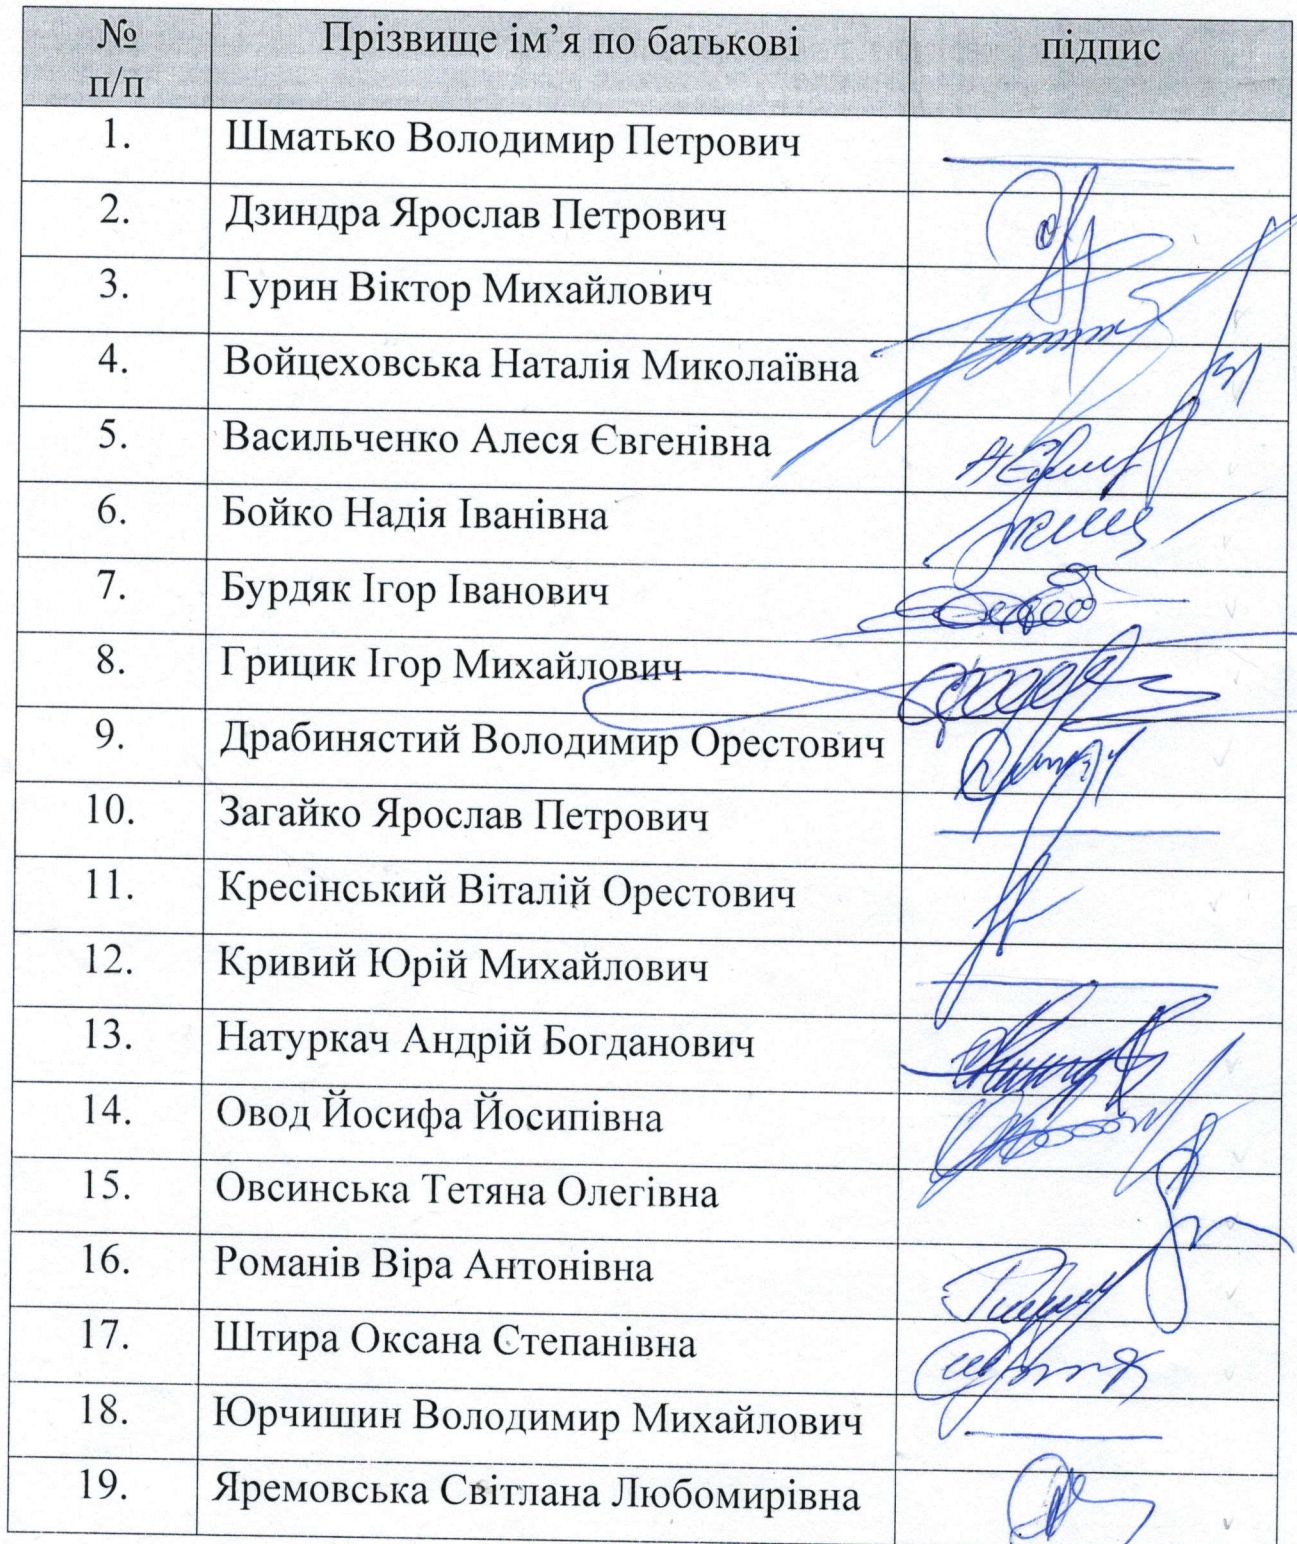 № Прізвище ім’я по батькові підпис
п/п
1. Шматько Володимир Петрович
2. Дзиндра Ярослав Петрович
3. Гурин Віктор Михайлович
4. Войцеховська Наталія Миколаївна
5. Васильченко Алеся Євгенівна
6. Бойко Надія Іванівна
7. Бурдяк Ігор Іванович
8. Грицик Ігор Михайлович
9. Драбинястий Володимир Орестович
10. Загайко Ярослав Петрович
11. Кресінський Віталій Орестович
12. Кривий Юрій Михайлович
13. Натуркач Андрій Богданович
14. Овод Йосифа Йосипівна
15. Овсинська Тетяна Олегівна
16. Романів Віра Антонівна
17. Штира Оксана Степанівна
18. Юрчишин Володимир Михайлович
19. Яремовська Світлана Любомирівна